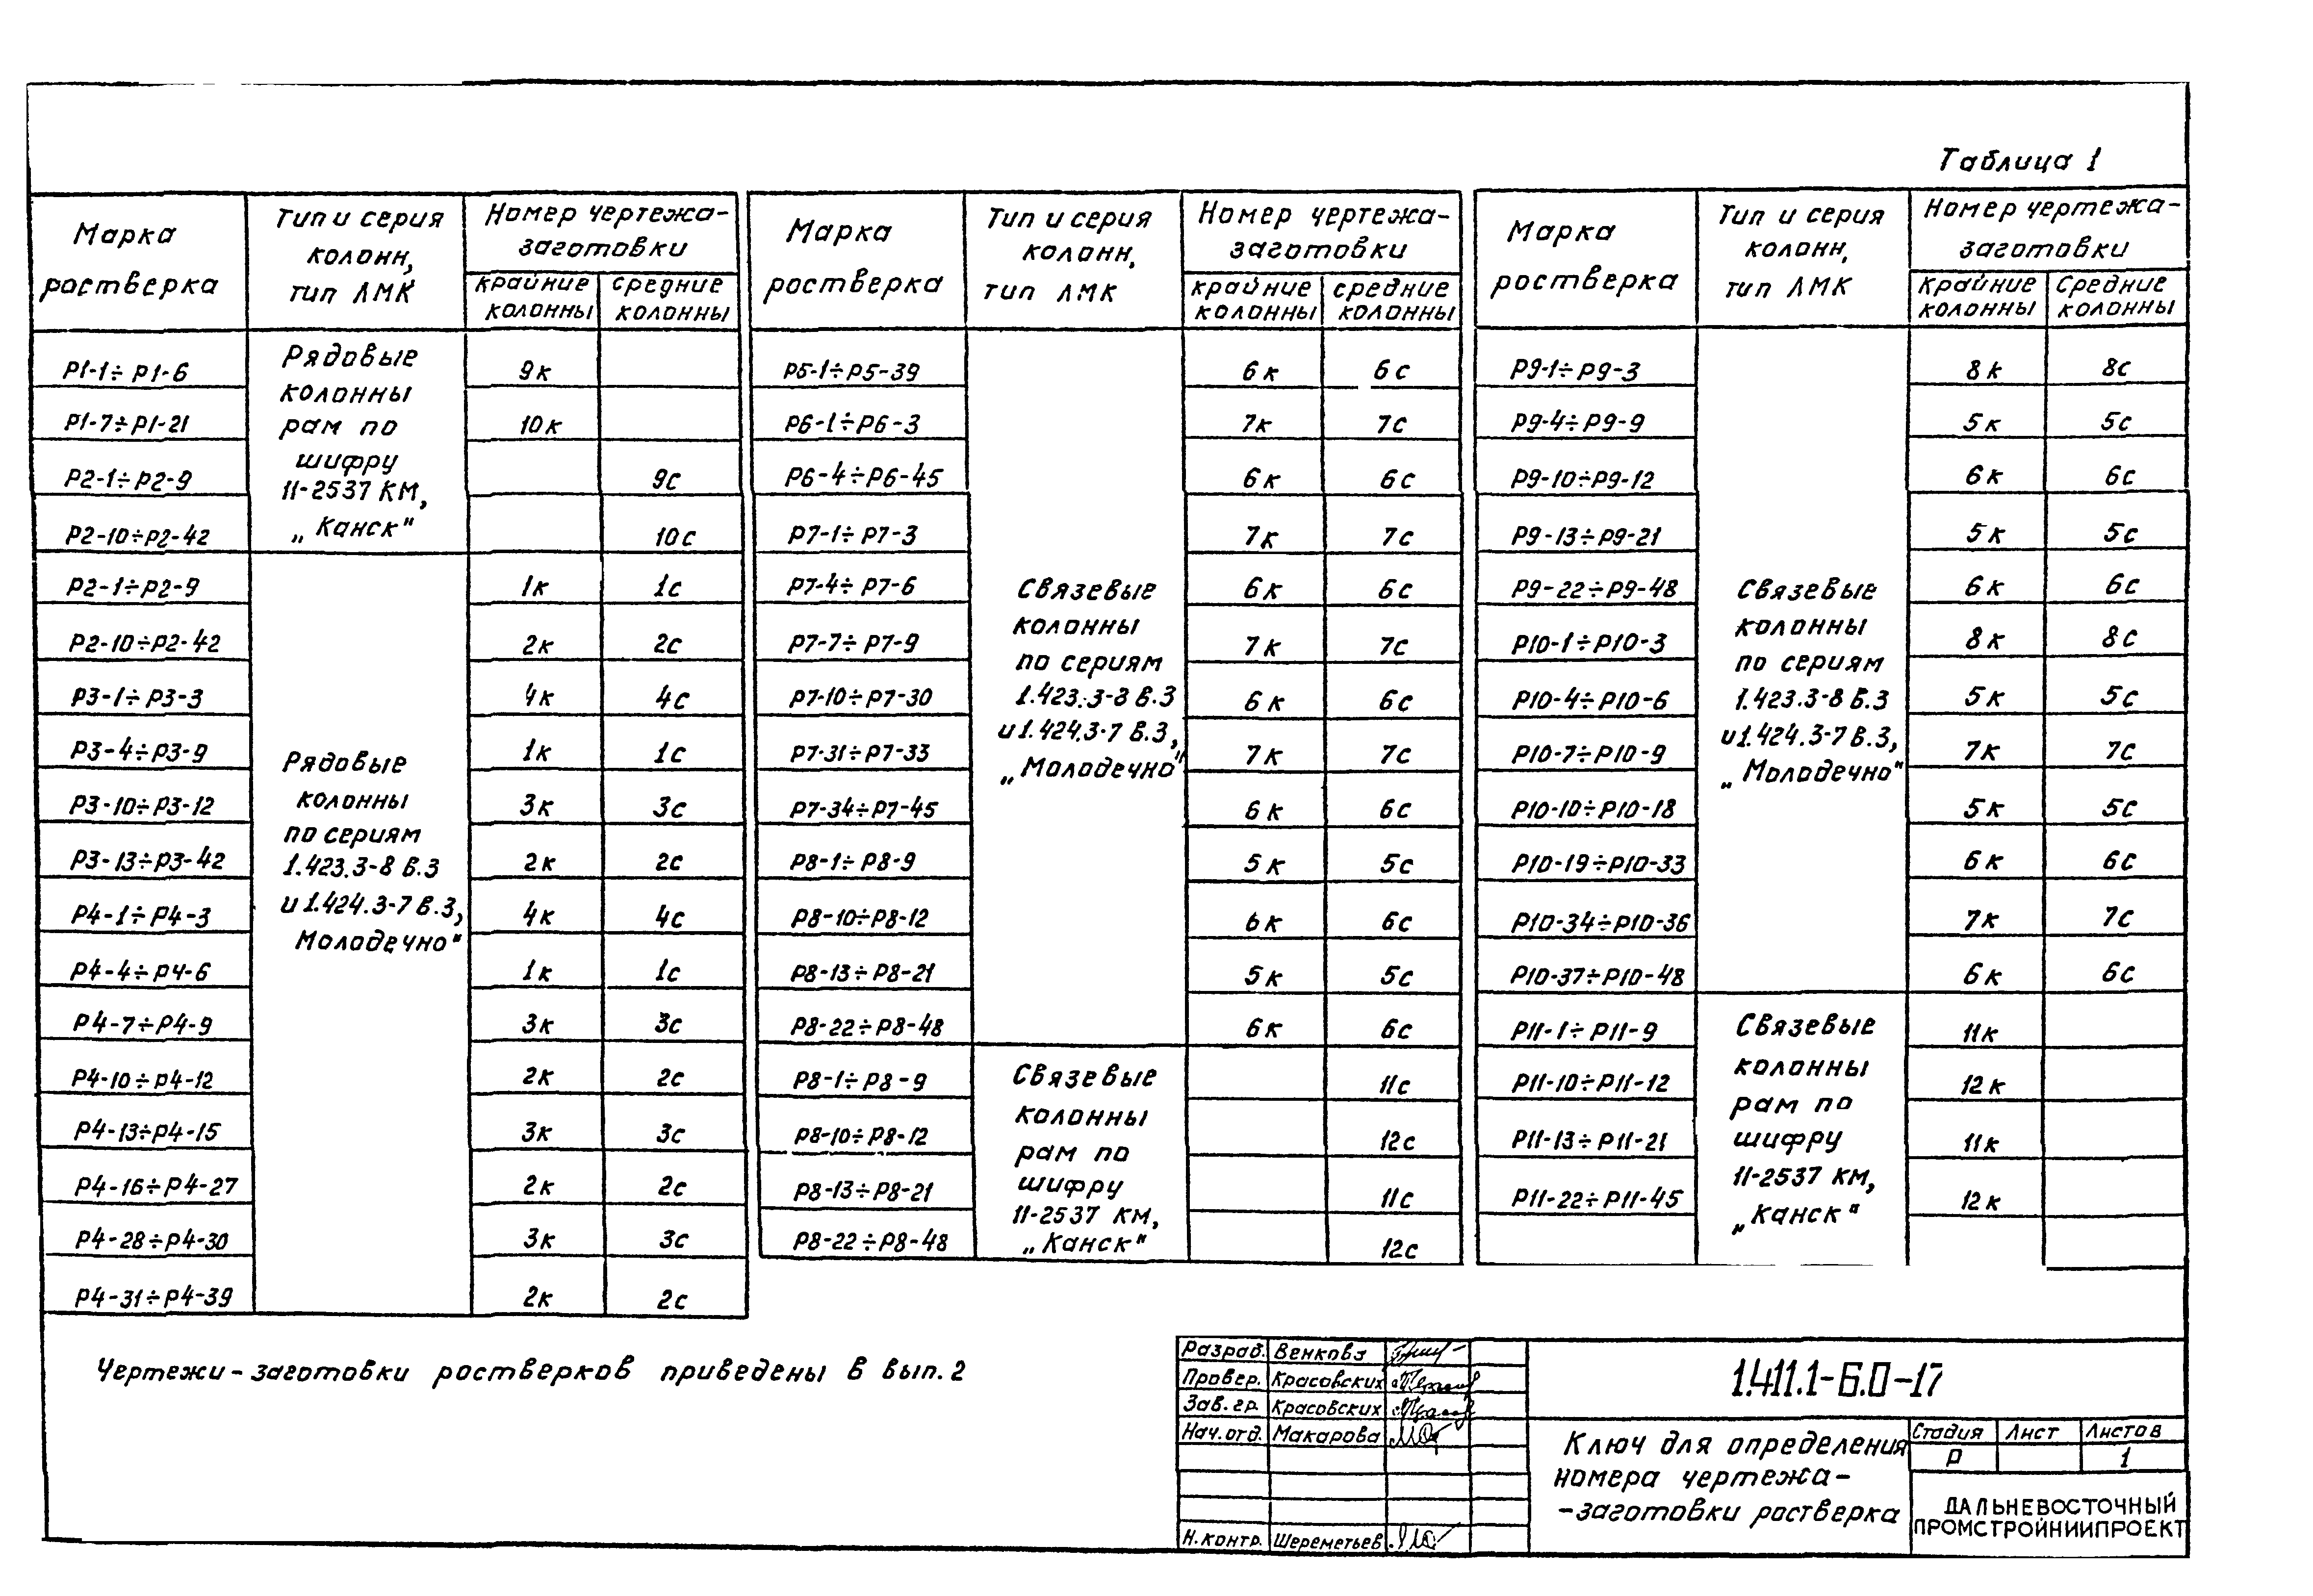 Таблица 1
Марка ростверка | Тип и серия колонн, тип ЛМК | Номер чертежа-заготовки | крайние колонны | средние колонны
Р1-1÷Р1-6 | 9к
Р1-7÷Р1-21 | 10к
Р2-1÷Р2-9 | 9с
Р2-10÷Р2-42 | 10с
Рядовые
колонны
рам по
шифру
11-2537 КМ,
„Канск"
Р2-1÷Р2-9 | 1к | 1с
Р2-10÷Р2-42 | 2к | 2с
Р3-1÷Р3-3 | 4к | 4с
Р3-4÷Р3-9 | 1к | 1с
Р3-10÷Р3-12 | 3к | 3с
Р3-13÷Р3-42 | 2к | 2с
Р4-1÷Р4-3 | 4к | 4с
Р4-4÷Р4-6 | 1к | 1с
Р4-7÷Р4-9 | 3к | 3с
Р4-10÷Р4-12 | 2к | 2с
Р4-13÷Р4-15 | 3к | 3с
Р4-16÷Р4-27 | 2к | 2с
Р4-28÷Р4-30 | 3к | 3с
Р4-31÷Р4-39 | 2к | 2с
Рядовые
колонны
по сериям
1.423.3-8 В.3
и 1.424.3-7 В.3,
Молодечно"
Марка ростверка | Тип и серия колонн, тип ЛМК | Номер чертежа-заготовки | крайние колонны | средние колонны
Р5-1÷Р5-39 | 6к | 6с
Р6-1÷Р6-3 | 7к | 7с
Р6-4÷Р6-45 | 6к | 6с
Р7-1÷Р7-3 | 7к | 7с
Р7-4÷Р7-6 | 6к | 6с
Р7-7÷Р7-9 | 7к | 7с
Р7-10÷Р7-30 | 6к | 6с
Р7-31÷Р7-33 | 7к | 7с
Р7-34÷Р7-45 | 6к | 6с
Р8-1÷Р8-9 | 5к | 5с
Р8-10÷Р8-12 | 6к | 6с
Р8-13÷Р8-21 | 5к | 5с
Р8-22÷Р8-48 | 6к | 6с
Связевые
колонны
по сериям
1.423.3-8 В.3
и 1.424.3-7 В.3,
„Молодечно"
Р8-1÷Р8-9 | 11с
Р8-10÷Р8-12 | 12с
Р8-13÷Р8-21 | 11с
Р8-22÷Р8-48 | 12с
Связевые
колонны
рам по
шифру
11-2537 КМ,
„Канск"
Марка ростверка | Тип и серия колонн, тип ЛМК | Номер чертежа-заготовки | крайние колонны | средние колонны
Р9-1÷Р9-3 | 8к | 8с
Р9-4÷Р9-9 | 5к | 5с
Р9-10÷Р9-12 | 6к | 6с
Р9-13÷Р9-21 | 5к | 5с
Р9-22÷Р9-48 | 6к | 6с
Р10-1÷Р10-3 | 8к | 8с
Р10-4÷Р10-6 | 5к | 5с
Р10-7÷Р10-9 | 7к | 7с
Р10-10÷Р10-18 | 5к | 5с
Р10-19÷Р10-33 | 6к | 6с
Р10-34÷Р10-36 | 7к | 7с
Р10-37÷Р10-48 | 6к | 6с
Связевые
колонны
по сериям
1.423.3-8 В.3
и 1.424.3-7 В.3,
„Молодечно"
Р11-1÷Р11-9 | 11к
Р11-10÷Р11-12 | 12к
Р11-13÷Р11-21 | 11к
Р11-22÷Р11-45 | 12к
Связевые
колонны
рам по
шифру
11-2537 КМ,
„Канск"
Чертежи-заготовки ростверков приведены в вып. 2
Разраб. Венкова
Провер. Красовских
Зав. гр. Красовских
Нач. отд. Макарова
Н. контр. Шереметьев
1.411.1-6.0-17
Ключ для определения
номера чертежа-
-заготовки ростверка
Стадия | Лист | Листов
Р | 1
ДАЛЬНЕВОСТОЧНЫЙ
ПРОМСТРОЙНИИПРОЕКТ